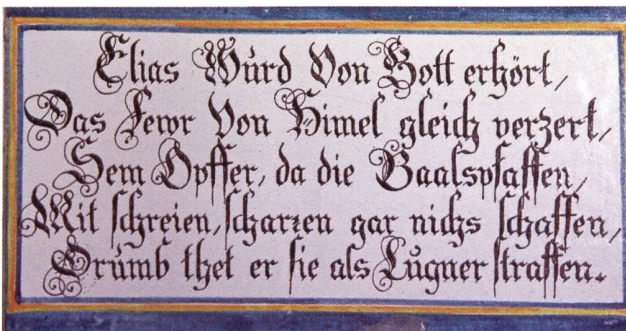 Elias Wurd Von Gott erhört,
Das Fewr Von Himel gleich verzert,
Sein Opffer, da die Baalspfaffen,
Mit schreien, scharren gar nichs schaffen,
Drumb thet er sie als Lugner straffen.